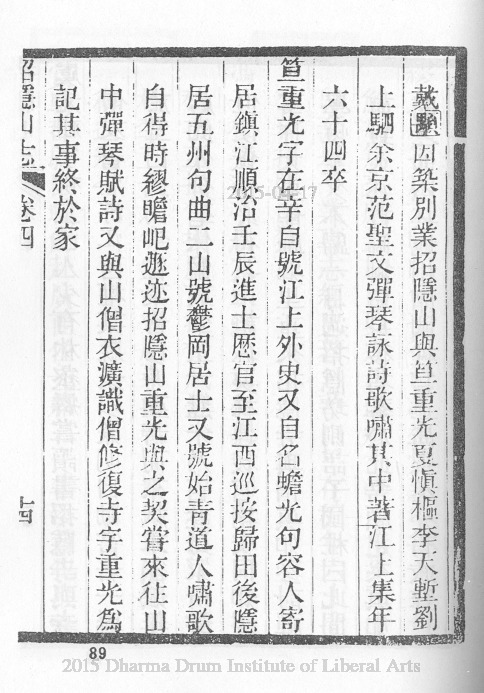 戴顒因築別業招隱山與笪重光夏愼樞李天塹劉
上駟余京范聖文彈琴詠詩歌嘯其中著江上集年
六十四卒
笪重光字在辛自號江上外史又自名蟾光句容人寄
居鎭江順治壬辰進士歴官至江西巡按歸田後隱
居五州句曲二山號鬱岡居士又號始青道人嘯歌
自得時繆瞻𡵺遯迹招隱山重光與之契嘗來往山
中彈琴賦詩又與山僧衣濵識僧修復寺字重光爲
記其事終於家
招隱山志
卷四
十四
89
2015 Dharma Drum Institute of Liberal Arts